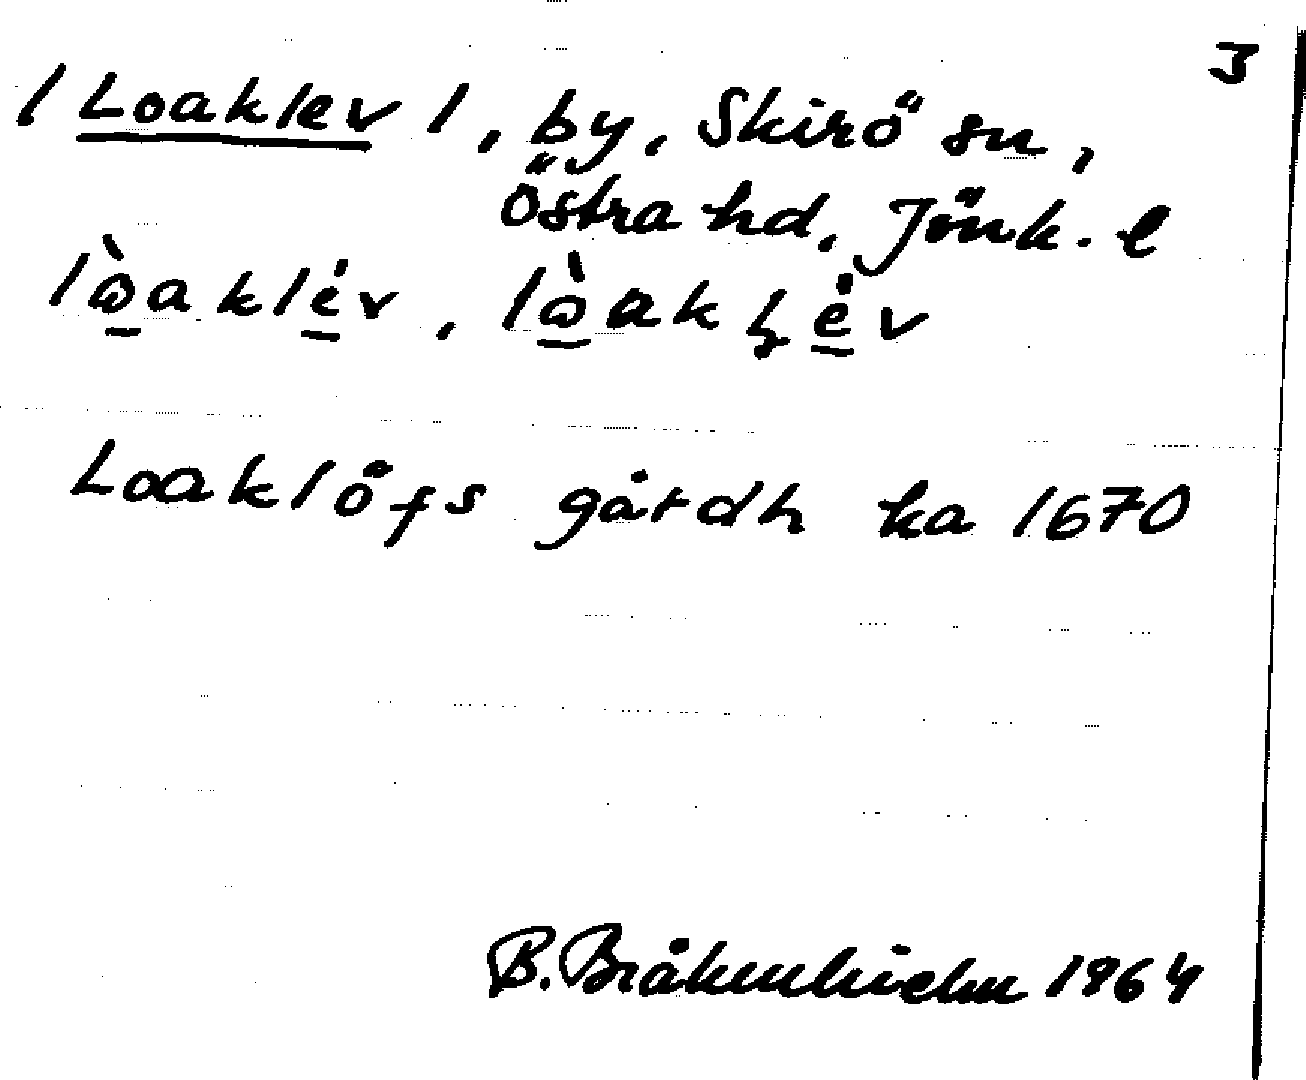 3
/ Loaklev /, by, Skirö sn,
Östra hd, Jönk. l
lò̱aklė̱v, lò̱akl̥ė̱v
Loaklöfs gårdh ka 1670
B. Bråkenhielm 1964